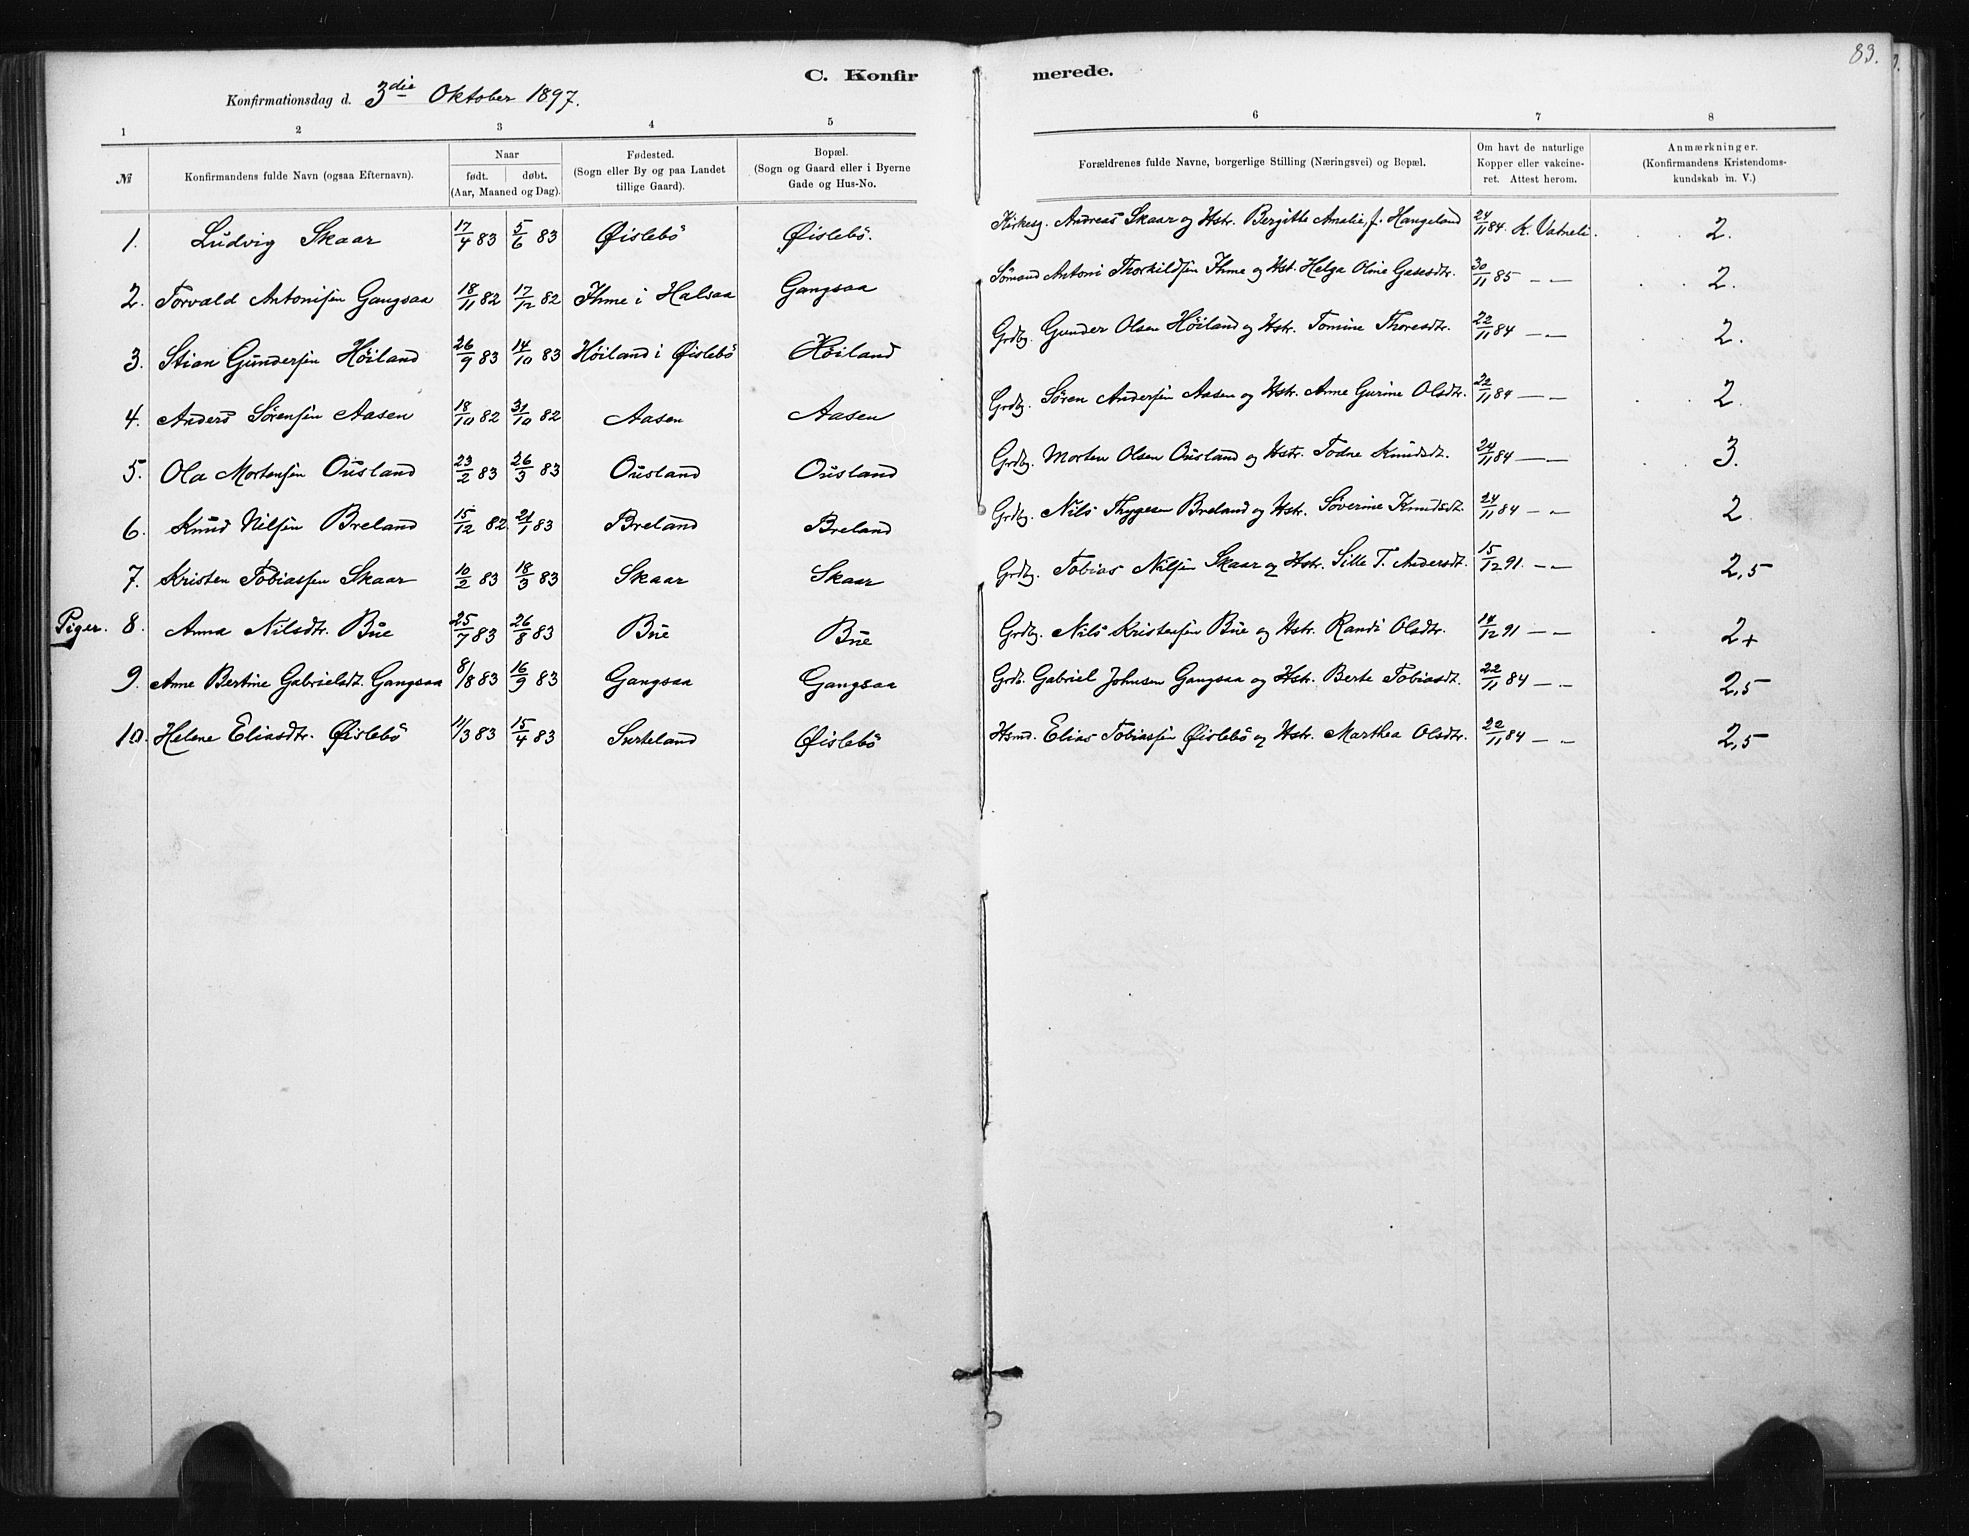 83.
C. Konfirmerede.
Konfirmationsdag d. 3die Oktober 1897.
1 2 3 4 5 6 7 8
№ Konfirmandens fulde Navn (ogsaa Efternavn). Naar født. døbt. (Aar, Maaned og Dag). Fødested. (Sogn eller By og paa Landet tillige Gaard). Bopæl. (Sogn og Gaard eller i Byerne Gade og Hus-No. Forældrenes fulde Navne, borgerlige Stilling (Næringsvei) og Bopæl. Om havt de naturlige Kopper eller vakcineret. Attest herom. Anmærkninger. (Konfirmandens Kristendomskundskab m. V.)
1. Ludvig Skaar 17/4 83 5/6 83 Øislebö Øislebö. Kirkesg. Andreas Skaar og Hstr. Bergitte Amalie, f. Haugeland 24/11 84. K. Vatneli. 2.
2. Torvald Antonisen Gangsaa 18/11 82 17/12 82 Ihme i Halsaa Gangsaa Sömand Antoni Thorkildsen Ihme og Hst. Helga Oline Gabsdtr. 30/11 85 – – 2.
3. Stian Gundersen Höiland 26/9 83 14/10 83 Höiland i Øislebö Höiland Grdbg. Gunder Olsen Höiland og Hstr. Tomine Thoresdtr. 22/11 84 – – 2.
4. Anders Sörensen Aasen 18/10 82 31/10 82 Aasen Aasen Grdbg. Sören Andersen Aasen og Hstr. Anne Gurine Olsdtr. 22/11 84 – – 2.
5. Ola Mortensen Ousland 23/2 83 26/3 83 Ousland Ousland Grdbg. Morten Olsen Ousland og Hstr. Todne Knudsdt. 24/11 84 – – 3.
6. Knud Nilsen Breland 15/12 82 21/1 83 Breland Breland Grdbg. Nils Thygesen Breland og Hstr. Söverine Knudsdt. 24/11 84 – – 2
7. Kristen Tobiassen Skaar 10/2 83 18/3 83 Skaar Skaar Grdbg. Tobias Nilsen Skaar og Hstr. Sille T. Andersdt. 15/12 91. – – 2,5
Piger. 8. Anna Nilsdtr. Bue 25/7 83 26/8 83 Bue Bue Grdbg. Nils Kristensen Bue og Hstr. Randi Olsdtr. 14/12 91 – – 2+
9. Anne Bertine Gabrielsdt. Gangsaa 8/8 83 16/9 83 Gangsaa Gangsaa Grdb. Gabriel Johnsen Gangsaa og Hstr. Berte Tobiasdt. 22/11 84 – – 2,5
10. Helene Eliasdtr. Øislebö 11/3 83 15/4 83 Sveteland Øislebö Hsmd. Elias Tobiassen Øislebö og Hstr. Marthea Olsdtr. 22/11 84 – – 2,5